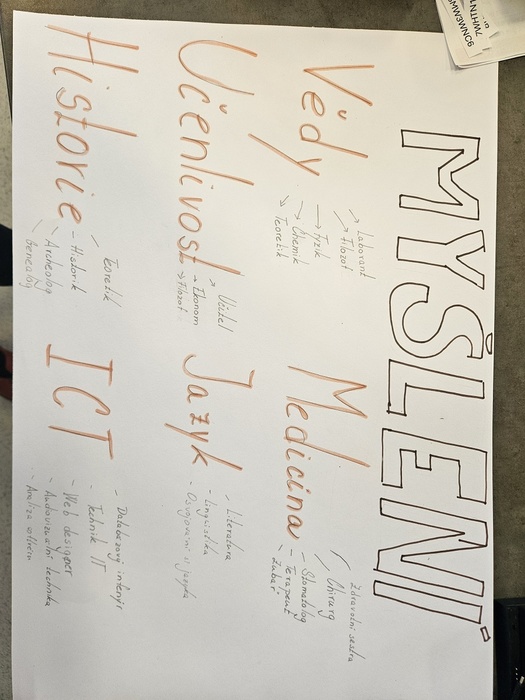 MYŠLENÍ
Vědy
Laborant
Filozof
Fyzik
Chemik
Teoretik
Medicína
Zdravotní sestra
Chirurg
Stomatolog
Terapeut
Zubař
Učenlivost
Učitel
Ekonom
Filozof
Jazyk
- Literatura
- Lingvistika
- Osvojování si jazyka
Historie
Teoretik
- Historik
Archeolog
Genealog
ICT
- Databázový inženýr
- Technik IT
- Web designer
- Audiovizuální technika